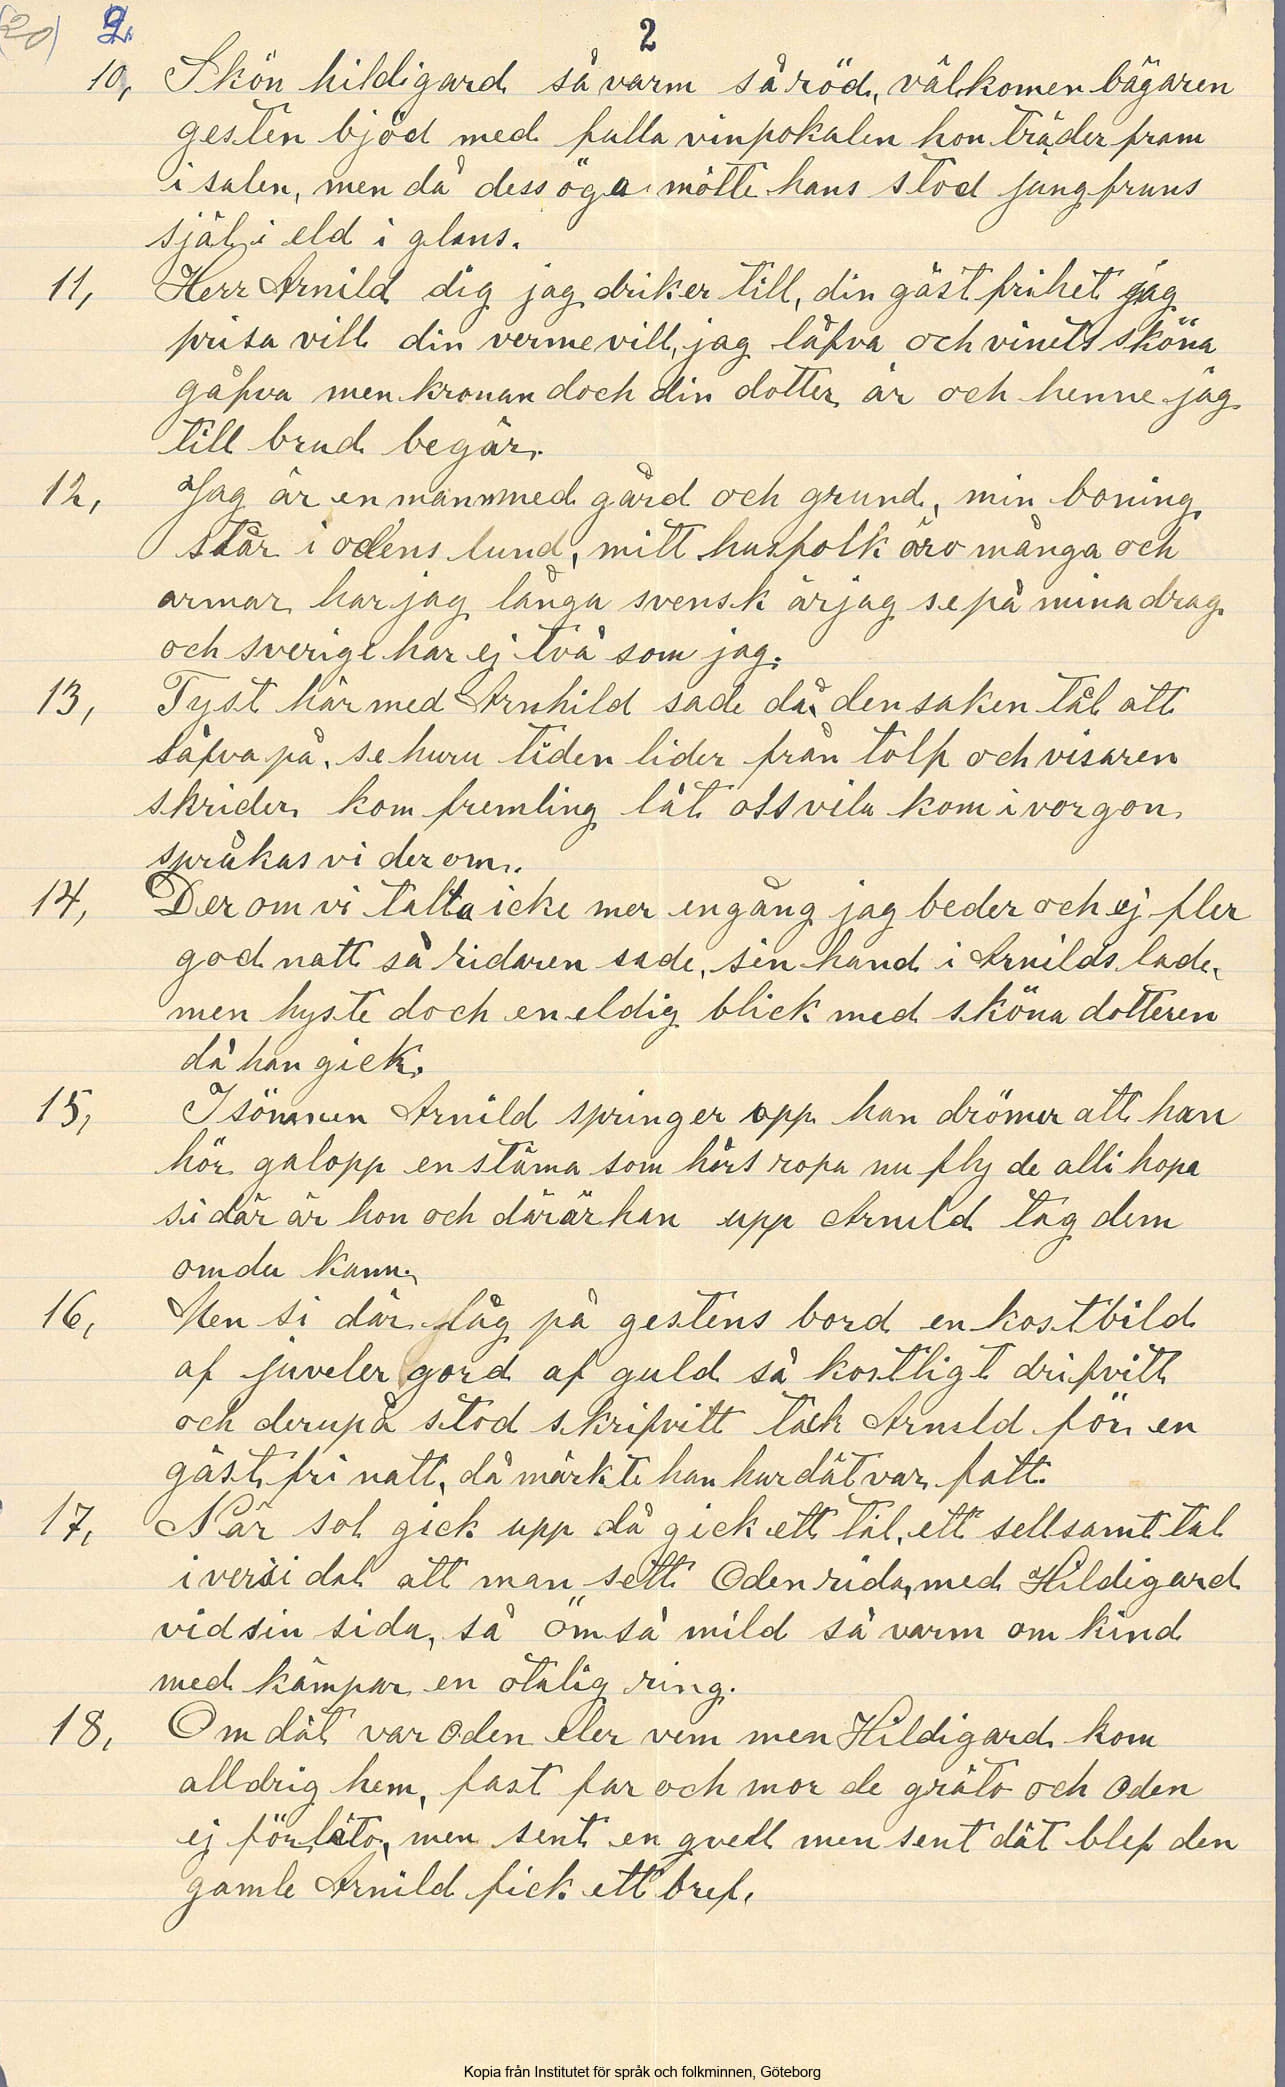 (20) 2.
2
10, Skön hildigard så varm så röd, välkomen bägaren
gesten bjöd med fulla vinpokalen hon träder fram
i salen, men då dess öga mötte hans stod jungfruns
själ i eld i glans.
11, Herr Arnild dig jag driker till, din gästfrihet jag
prisa vill din verme vill, jag låfva och vinets sköna
gåfva men kronan doch din dotter är och henne jag
till brud begär.
12, Jag är en man med gård och grund, min boning
står i odens lund, mitt husfolk äro många och
armar har jag långa svensk är jag se på mina drag
och sverige har ej två som jag.
13, Tyst här med Arnhild sade då, den saken tål att
såfva på, se huru tiden lider från tolf och visaren
skrider kom fremling låt oss vila kom i vorgon
språkas vi der om.
14, Der om vi talta icke mer engång jag beder och ej fler
god natt så ridaren sade, sin hand i Arnilds lade,
men hyste doch en eldig blick med sköna dotteren
då han gick.
15, I sömnen Arnild springer upp han drömer att han
hör galopp en stäma som hörs ropa nu fly de alli hopa
si där är hon och där är han upp Arnild tag dem
om du kann.
16, Men si där låg på gestens bord en kostbild
af juveler gord af guld så kostligt drifvitt
och derupå stod skrifvitt tack Arnild för en
gäst fri natt, då märkte han hur dät var fatt.
17, När sol gick upp då gick ett tal, ett sellsamt tal
i versi dal att man sett Oden rida, med Hildigard
vid sin sida, så öm så mild så varm om kind
med kämpar en otalig ring.
18, Om dät var oden eler vem men Hildigard kom
alldrig hem, fast far och mor de gräto och Oden
ej förläto, men sent en qvell men sent dät blef den
gamle Arnild fick ett bref.
Kopia från Institutet för språk och folkminnen, Göteborg